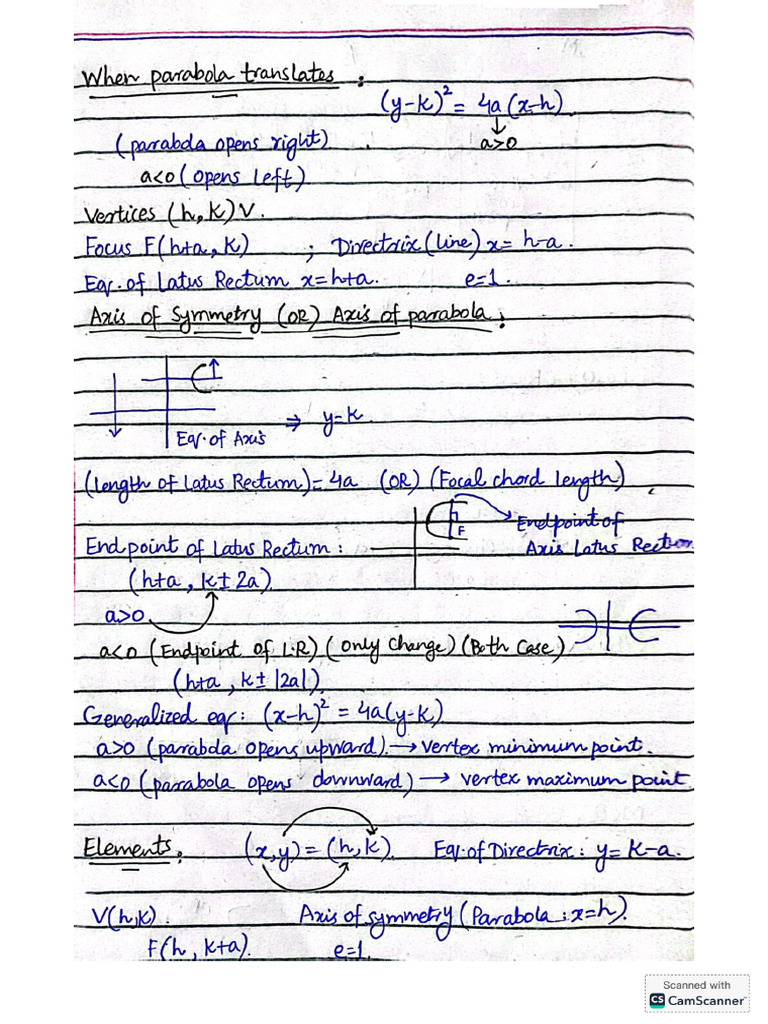 When parabola translates :
(y-k)² = 4a(x-h)
(parabola opens right)
a>0
a<0 (opens left)
Vertices (h,k) V.
Focus F(h+a, k) ; Directrix (line) x = h-a.
Eq. of Latus Rectum x=h+a. e=1.
Axis of Symmetry (OR) Axis of parabola :
Eq. of Axis ⇒ y=k
(Length of Latus Rectum) = 4a (OR) (Focal chord length)
F
Endpoint of
Axis Latus Rectum
Endpoint of Latus Rectum :
(h+a, k±2a)
a>0
a<0 (Endpoint of L.R) (Only change) (Both Case)
(h+a, k±|2a|)
Generalized eq: (x-h)² = 4a(y-k)
a>0 (parabola opens upward) → vertex minimum point.
a<0 (parabola opens downward) → vertex maximum point
Elements : (x,y) = (h,k). Eq. of Directrix : y = k-a.
V(h,k). Axis of symmetry (Parabola : x=h).
F(h, k+a). e=1.
Scanned with
CS CamScanner